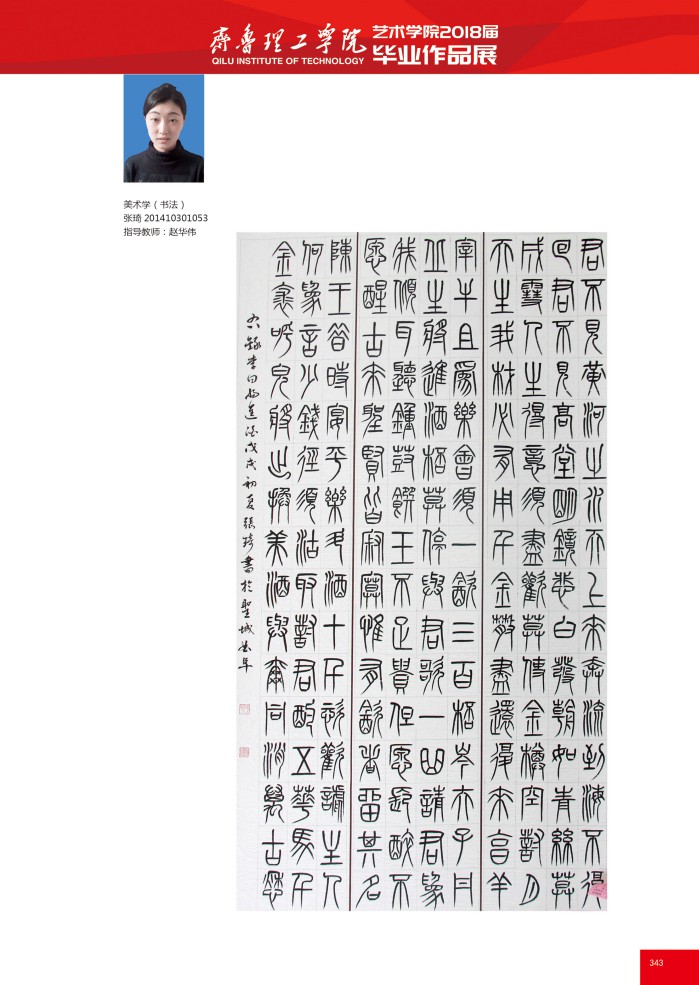 齊魯理工學院
QILU INSTITUTE OF TECHNOLOGY
艺术学院2018届
毕业作品展
美术学（书法）
张琦 201410301053
指导教师：赵华伟
君不見黃河之水天上來奔流到海不復
回君不見高堂明鏡悲白髮朝如青絲暮
成雪人生得意須盡歡莫使金樽空對月
天生我材必有用千金散盡還復來烹羊
宰牛且為樂會須一飲三百杯岑夫子丹
丘生將進酒杯莫停與君歌一曲請君為
我傾耳聽鐘鼓饌玉不足貴但願長醉不
願醒古來聖賢皆寂寞惟有飲者留其名
陳王昔時宴平樂斗酒十千恣歡謔主人
何為言少錢徑須沽取對君酌五華馬千
金裘呼兒將出換美酒與爾同消萬古愁
右錄李白將進酒戊戌初夏張琦書於聖城曲阜
343